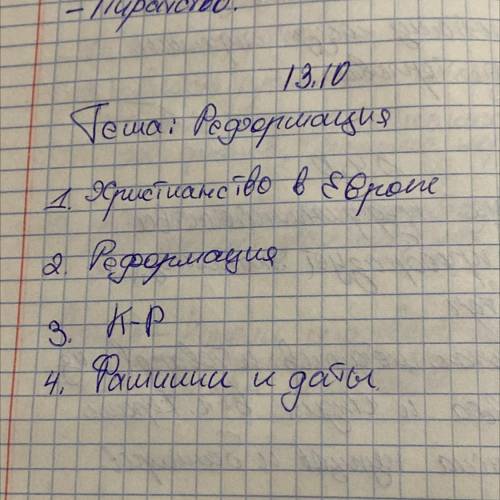 - Пиратство.
13.10
Тема: Реформация
1. Христианство в Европе
2. Реформация
3. К-Р
4. Фамилии и даты